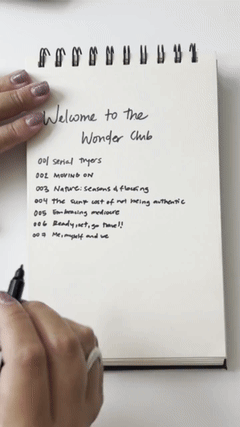 Welcome to the
Wonder Club
001 Serial Tryers
002 MOVING ON
003 Nature: Seasons & flowing
004 The sunk cost of not being authentic
005 Embracing mediocre
006 Ready, set, go have!!
007 Me, myself and we